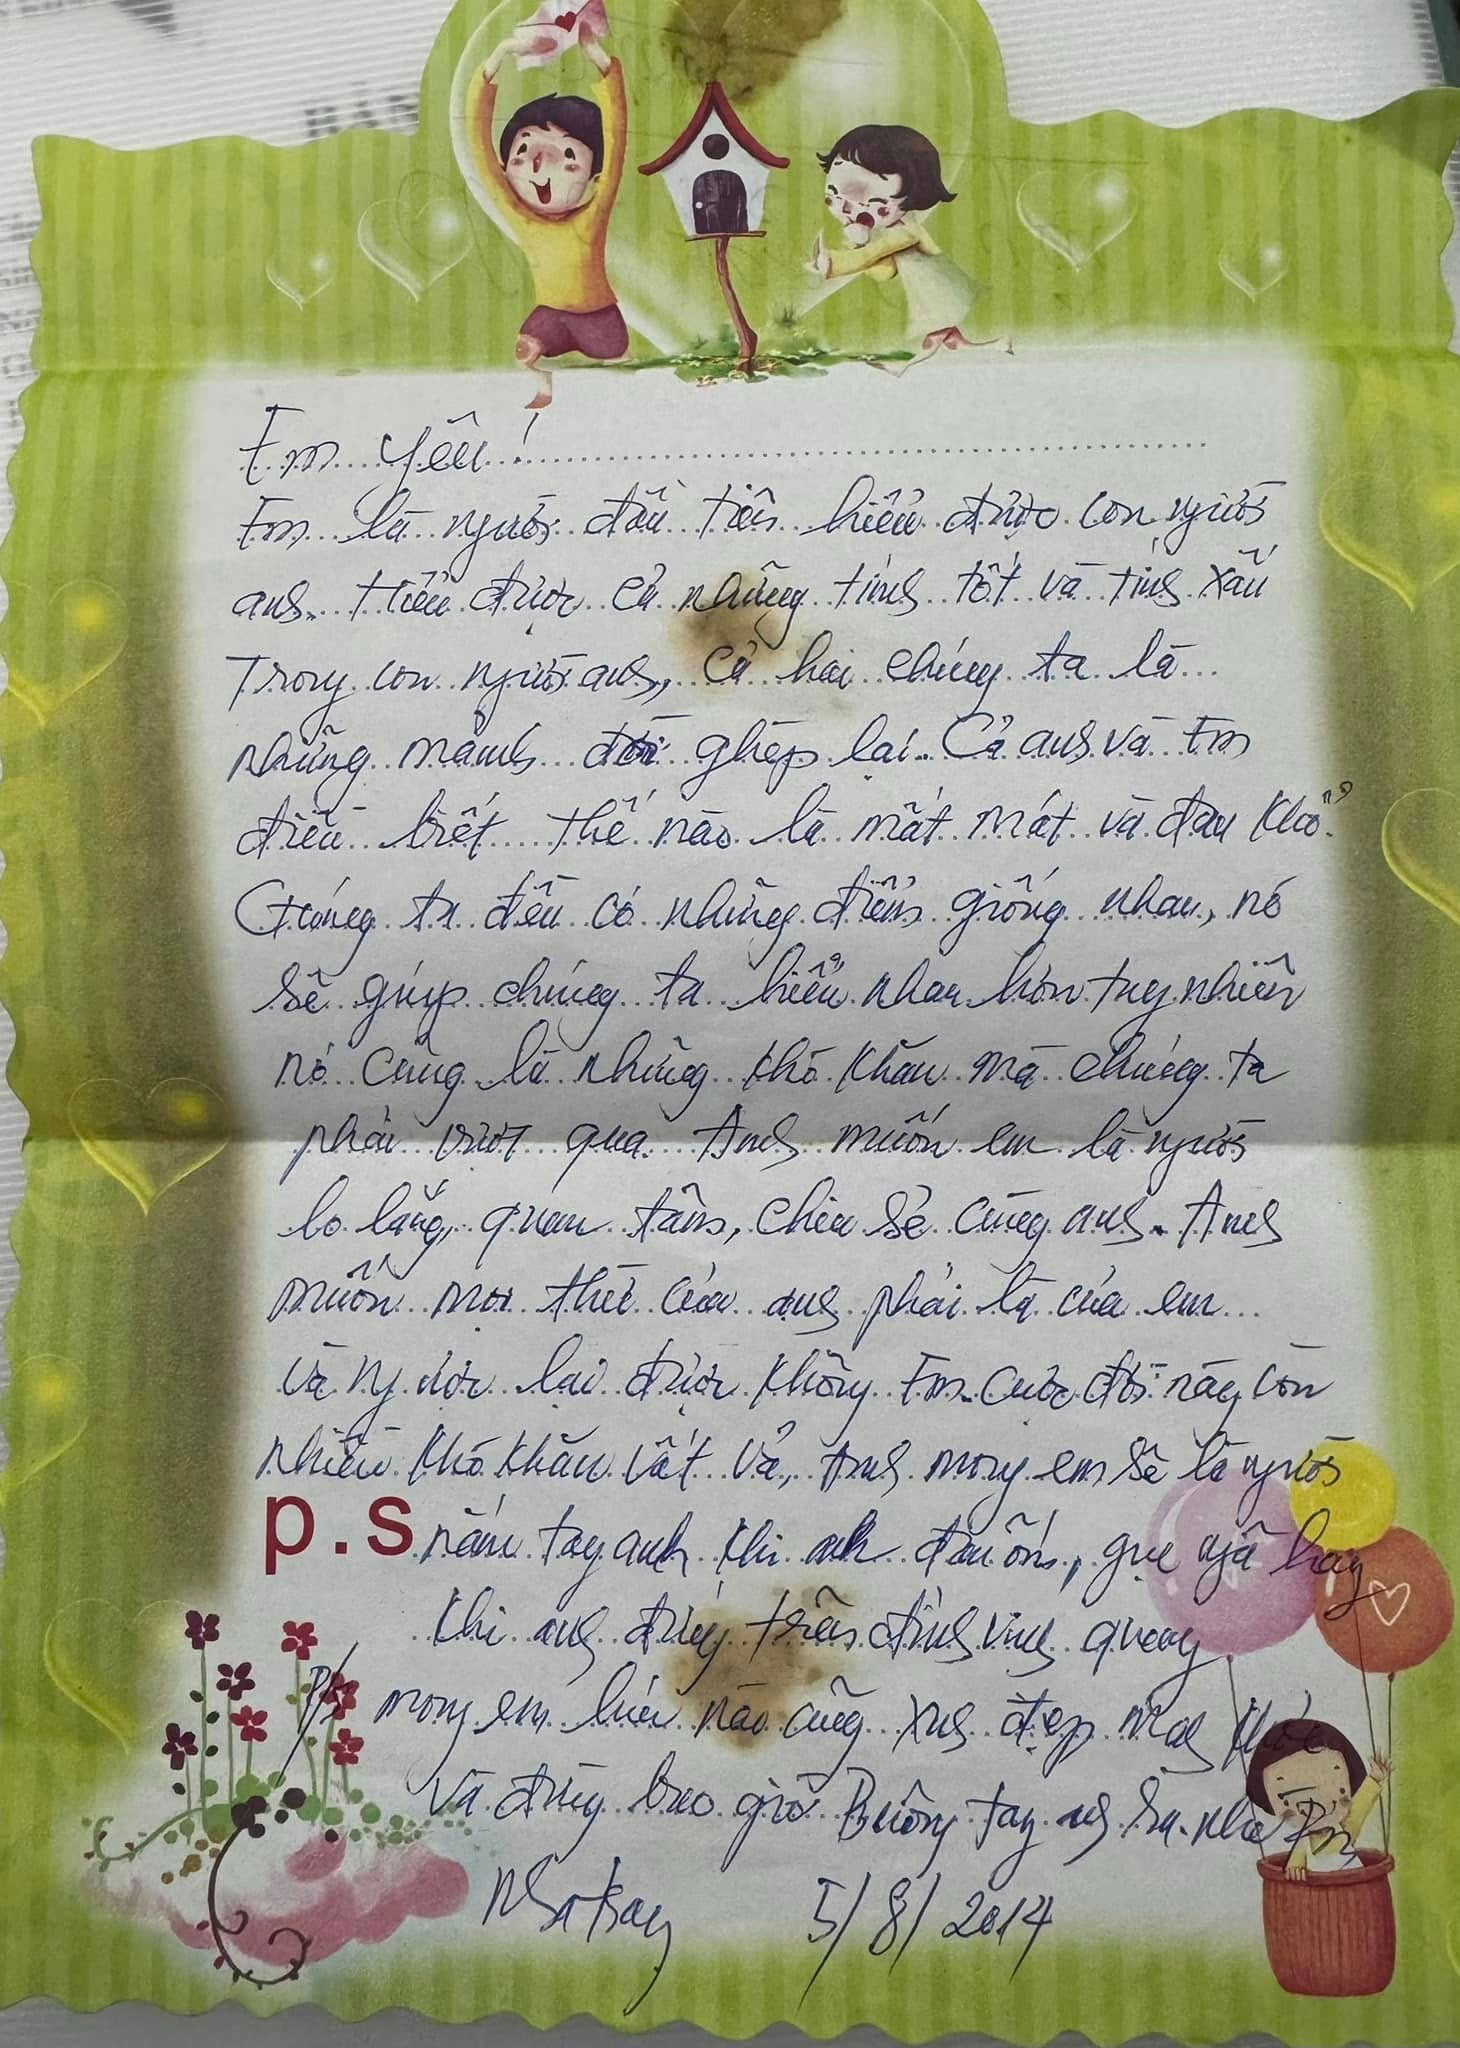 BẢN
Em yêu !
Em là người đầu tiên hiểu được con người
anh. Hiểu được cả những tính tốt và tính xấu
trong con người anh, Cả hai chúng ta là
những mảnh đời ghép lại. Cả anh và Em
điều biết thế nào là mất mát và đau khổ.
Chúng ta đều có những điểm giống nhau, nó
sẽ giúp chúng ta hiểu nhau hơn tuy nhiên
nó cũng là những khó khăn mà chúng ta
phải vượt qua. Anh muốn em là người
lo lắng, quan tâm, chia sẻ cùng anh. Anh
muốn mọi thứ của anh phải là của em
và ngược lại được không Em. Cuộc đời này còn
nhiều khó khăn vất vả, Anh mong em sẽ là người
p.s nắm tay anh khi anh đau ốm, gục ngã hay
khi anh đứng trên đỉnh vinh quang
P/s mong em lúc nào cũng xinh đẹp mạnh khỏe
và đừng bao giờ Buông tay anh ra nhé Em
Nha trang 5/8/2014